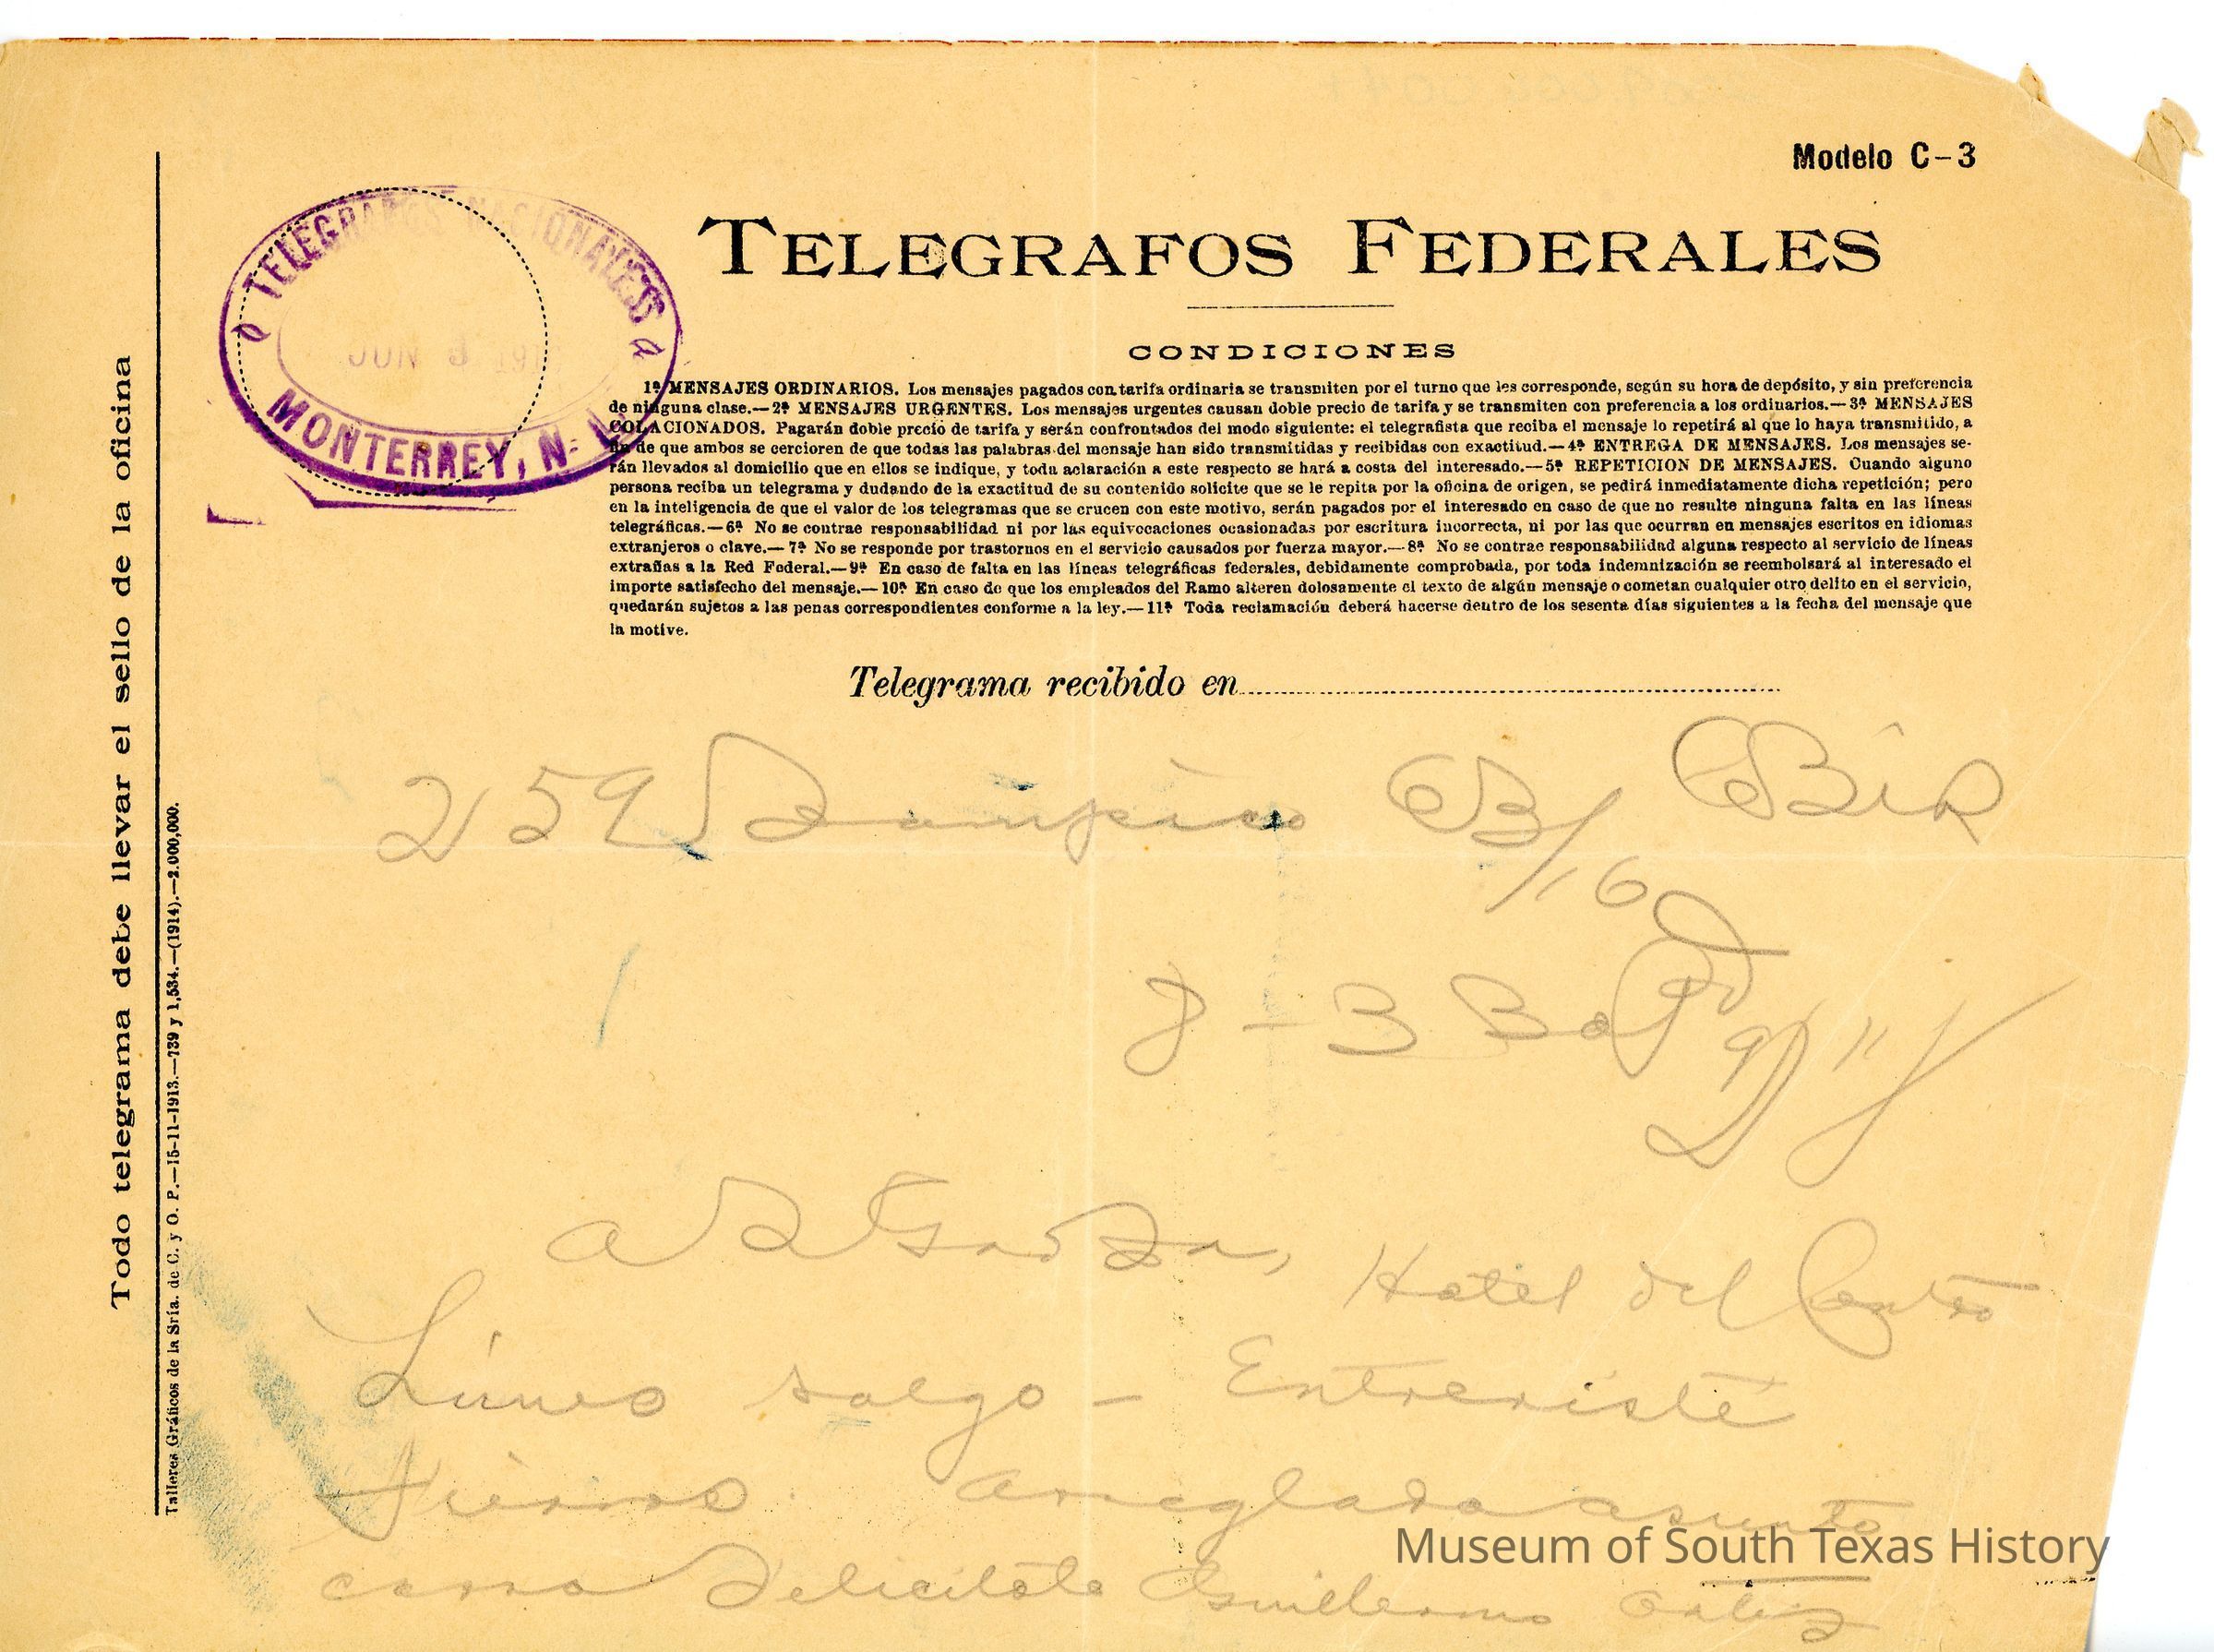 Modelo C-3
TELEGRAFOS NACIONALES
JUN 3 191
MONTERREY, N. L.
TELEGRAFOS FEDERALES
CONDICIONES
1ª MENSAJES ORDINARIOS. Los mensajes pagados con tarifa ordinaria se transmiten por el turno que les corresponde, según su hora de depósito, y sin preferencia
de ninguna clase.—2ª MENSAJES URGENTES. Los mensajes urgentes causan doble precio de tarifa y se transmiten con preferencia a los ordinarios.—3ª MENSAJES
COLACIONADOS. Pagarán doble precio de tarifa y serán confrontados del modo siguiente: el telegrafista que reciba el mensaje lo repetirá al que lo haya transmitido, a
fin de que ambos se cercioren de que todas las palabras del mensaje han sido transmitidas y recibidas con exactitud.—4ª ENTREGA DE MENSAJES. Los mensajes se-
rán llevados al domicilio que en ellos se indique, y toda aclaración a este respecto se hará a costa del interesado.—5ª REPETICION DE MENSAJES. Cuando alguno
persona reciba un telegrama y dudando de la exactitud de su contenido solicite que se le repita por la oficina de origen, se pedirá inmediatamente dicha repetición; pero
en la inteligencia de que el valor de los telegramas que se crucen con este motivo, serán pagados por el interesado en caso de que no resulte ninguna falta en las líneas
telegráficas.—6ª No se contrae responsabilidad ni por las equivocaciones ocasionadas por escritura incorrecta, ni por las que ocurran en mensajes escritos en idiomas
extranjeros o clave.—7ª No se responde por trastornos en el servicio causados por fuerza mayor.—8ª No se contrae responsabilidad alguna respecto al servicio de líneas
extrañas a la Red Federal.—9ª En caso de falta en las líneas telegráficas federales, debidamente comprobada, por toda indemnización se reembolsará al interesado el
importe satisfecho del mensaje.—10ª En caso de que los empleados del Ramo alteren dolosamente el texto de algún mensaje o cometan cualquier otro delito en el servicio,
quedarán sujetos a las penas correspondientes conforme a la ley.—11ª Toda reclamación deberá hacerse dentro de los sesenta días siguientes a la fecha del mensaje que
la motive.
Telegrama recibido en
259 Tampico
16
Hotel del Centro
Lunes salgo - Entreviste
arreglado asunto
Felicitolo Guillermo Ortiz
Todo telegrama debe llevar el sello de la oficina
Talleres Gráficos de la Sría. de C. y O. P.—15-11-1913.—739 y 1,534.—(1914).—2.000,000.
Museum of South Texas History